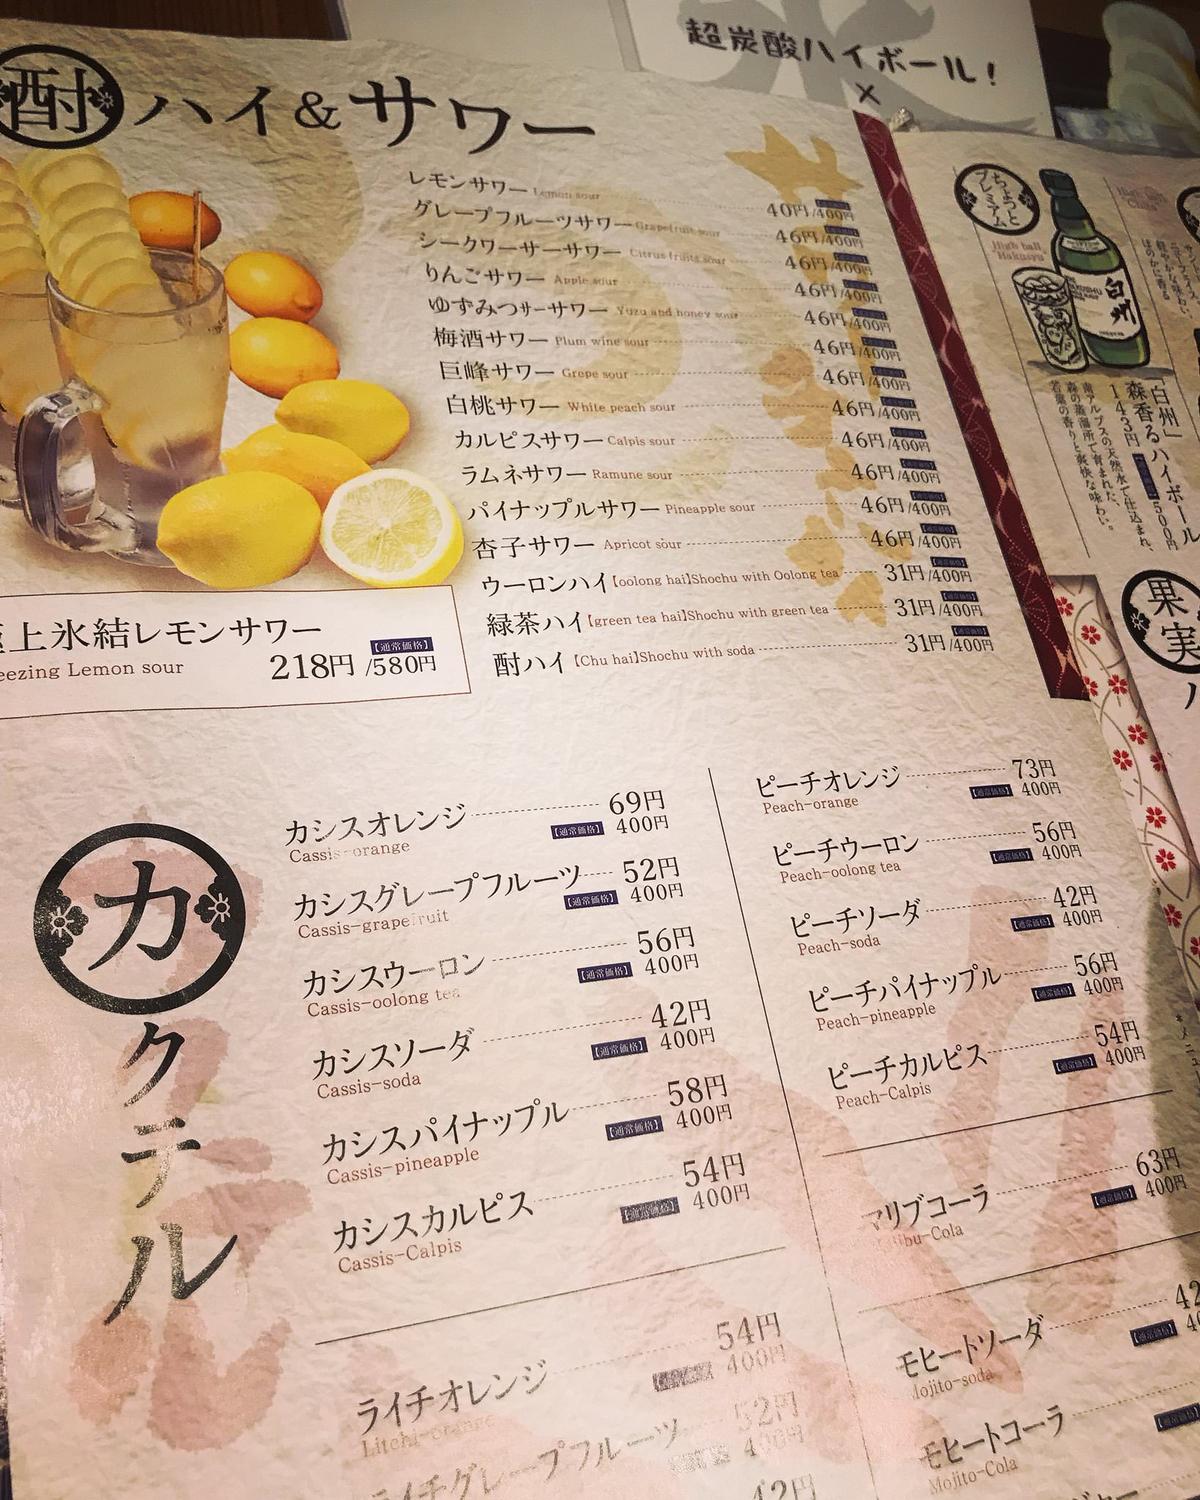 超炭酸ハイボール!
×
酎ハイ&サワー
レモンサワー Lemon sour 40円/400円
グレープフルーツサワー Grapefruit sour 46円/400円
シークワーサーサワー Citrus fruits sour 46円/400円
りんごサワー Apple sour 46円/400円
ゆずみつサーサワー Yuzu and honey sour 46円/400円
梅酒サワー Plum wine sour 46円/400円
巨峰サワー Grepe sour 46円/400円
白桃サワー White peach sour 46円/400円
カルピスサワー Calpis sour 46円/400円
ラムネサワー Ramune sour 46円/400円
パイナップルサワー Pineapple sour 46円/400円
杏子サワー Apricot sour 46円/400円
ウーロンハイ【oolong hai】Shochu with Oolong tea 31円/400円
緑茶ハイ【green tea hai】Shochu with green tea 31円/400円
酎ハイ【Chu hai】Shochu with soda 31円/400円
上氷結レモンサワー
eezing Lemon sour 218円 【通常価格】/580円
カクテル
カシスオレンジ 69円
Cassis-orange 【通常価格】 400円
カシスグレープフルーツ 52円
Cassis-grapefruit 【通常価格】 400円
カシスウーロン 56円
Cassis-oolong tea 【通常価格】 400円
カシスソーダ 42円
Cassis-soda 【通常価格】 400円
カシスパイナップル 58円
Cassis-pineapple 【通常価格】 400円
カシスカルピス 54円
Cassis-Calpis 【通常価格】 400円
ライチオレンジ 54円
Litchi-orange 400円
ライチグレープフルーツ 52円
400円
42円
ピーチオレンジ 73円
Peach-orange 【通常価格】 400円
ピーチウーロン 56円
Peach-oolong tea 【通常価格】 400円
ピーチソーダ 42円
Peach-soda 【通常価格】 400円
ピーチパイナップル 56円
Peach-pineapple 【通常価格】 400円
ピーチカルピス 54円
Peach-Calpis 【通常価格】 400円
マリブコーラ 63円
Malibu-Cola 【通常価格】 400円
モヒートソーダ 42
Mojito-soda 【通常価格】 40
モヒートコーラ
Mojito-Cola 【通常価格】
ちょっとプレミアム
High ball, Hakusyu
白州
「白州」
森香るハイボール
143円 500円
南アルプスの天然水で仕込まれ、
森の蒸溜所で育まれた、
若葉の香りと爽快な味わい。
果実